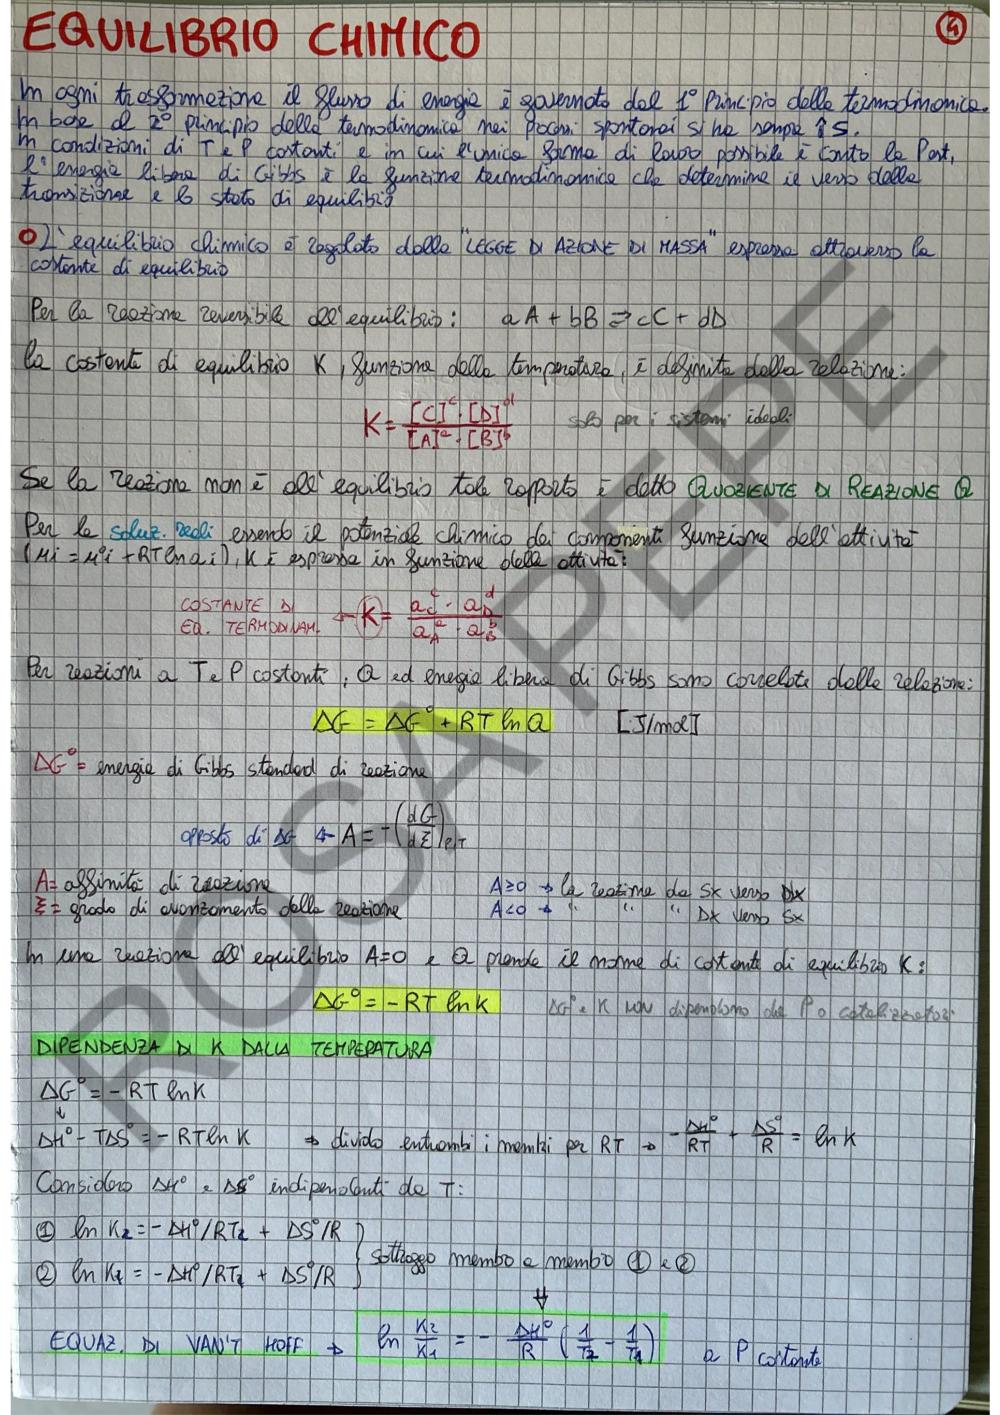 EQUILIBRIO CHIMICO
4
In ogni trasformazione il flusso di energia è governato dal 1° Principio della termodinamica.
In base al 2° principio della termodinamica nei processi spontanei si ha sempre ↑S.
In condizioni di T e P costanti e in cui l'unica forma di lavoro possibile è contro la Pest,
l'energia libera di Gibbs è la funzione termodinamica che determina il verso della
transizione e lo stato di equilibrio
L'equilibrio chimico è regolato dalla "LEGGE DI AZIONE DI MASSA" espressa attraverso la
costante di equilibrio
Per la reazione reversibile all'equilibrio: aA + bB ⇌ cC + dD
la costante di equilibrio K, funzione della temperatura, è definita dalla relazione:
K = [C]^c · [D]^d / [A]^a · [B]^b solo per i sistemi ideali
Se la reazione non è all'equilibrio tale rapporto è detto QUOZIENTE DI REAZIONE Q
Per le soluz. reali essendo il potenziale chimico dei componenti funzione dell'attività
(μi = μ°i + RT ln ai), K è espressa in funzione delle attività:
COSTANTE DI
EQ. TERMODINAM. ← K = a_C^c · a_D^d / a_A^a · a_B^b
Per reazioni a T e P costanti, Q ed energia libera di Gibbs sono correlate dalla relazione:
ΔG = ΔG° + RT ln Q [J/mol]
ΔG° = energia di Gibbs standard di reazione
opposto di ΔG ← A = -(dG/dξ)P,T
A = affinità di reazione A≥0 → la reazione da Sx verso Dx
ξ = grado di avanzamento della reazione A<0 → " " " Dx verso Sx
In una reazione all'equilibrio A=0 e Q prende il nome di costante di equilibrio K:
ΔG° = -RT ln K ΔG° e K NON dipendono da P o catalizzatori
DIPENDENZA DI K DALLA TEMPERATURA
ΔG° = -RT ln K
↓
ΔH° - TΔS° = -RT ln K → divido entrambi i membri per RT → -ΔH°/RT + ΔS°/R = ln K
Considero ΔH° e ΔS° indipendenti da T:
① ln K2 = -ΔH°/RT2 + ΔS°/R
② ln K1 = -ΔH°/RT1 + ΔS°/R } sottraggo membro a membro ① e ②
⇓
EQUAZ. DI VAN'T HOFF → ln K2/K1 = - ΔH°/R (1/T2 - 1/T1) a P costante
ROSA PEPE